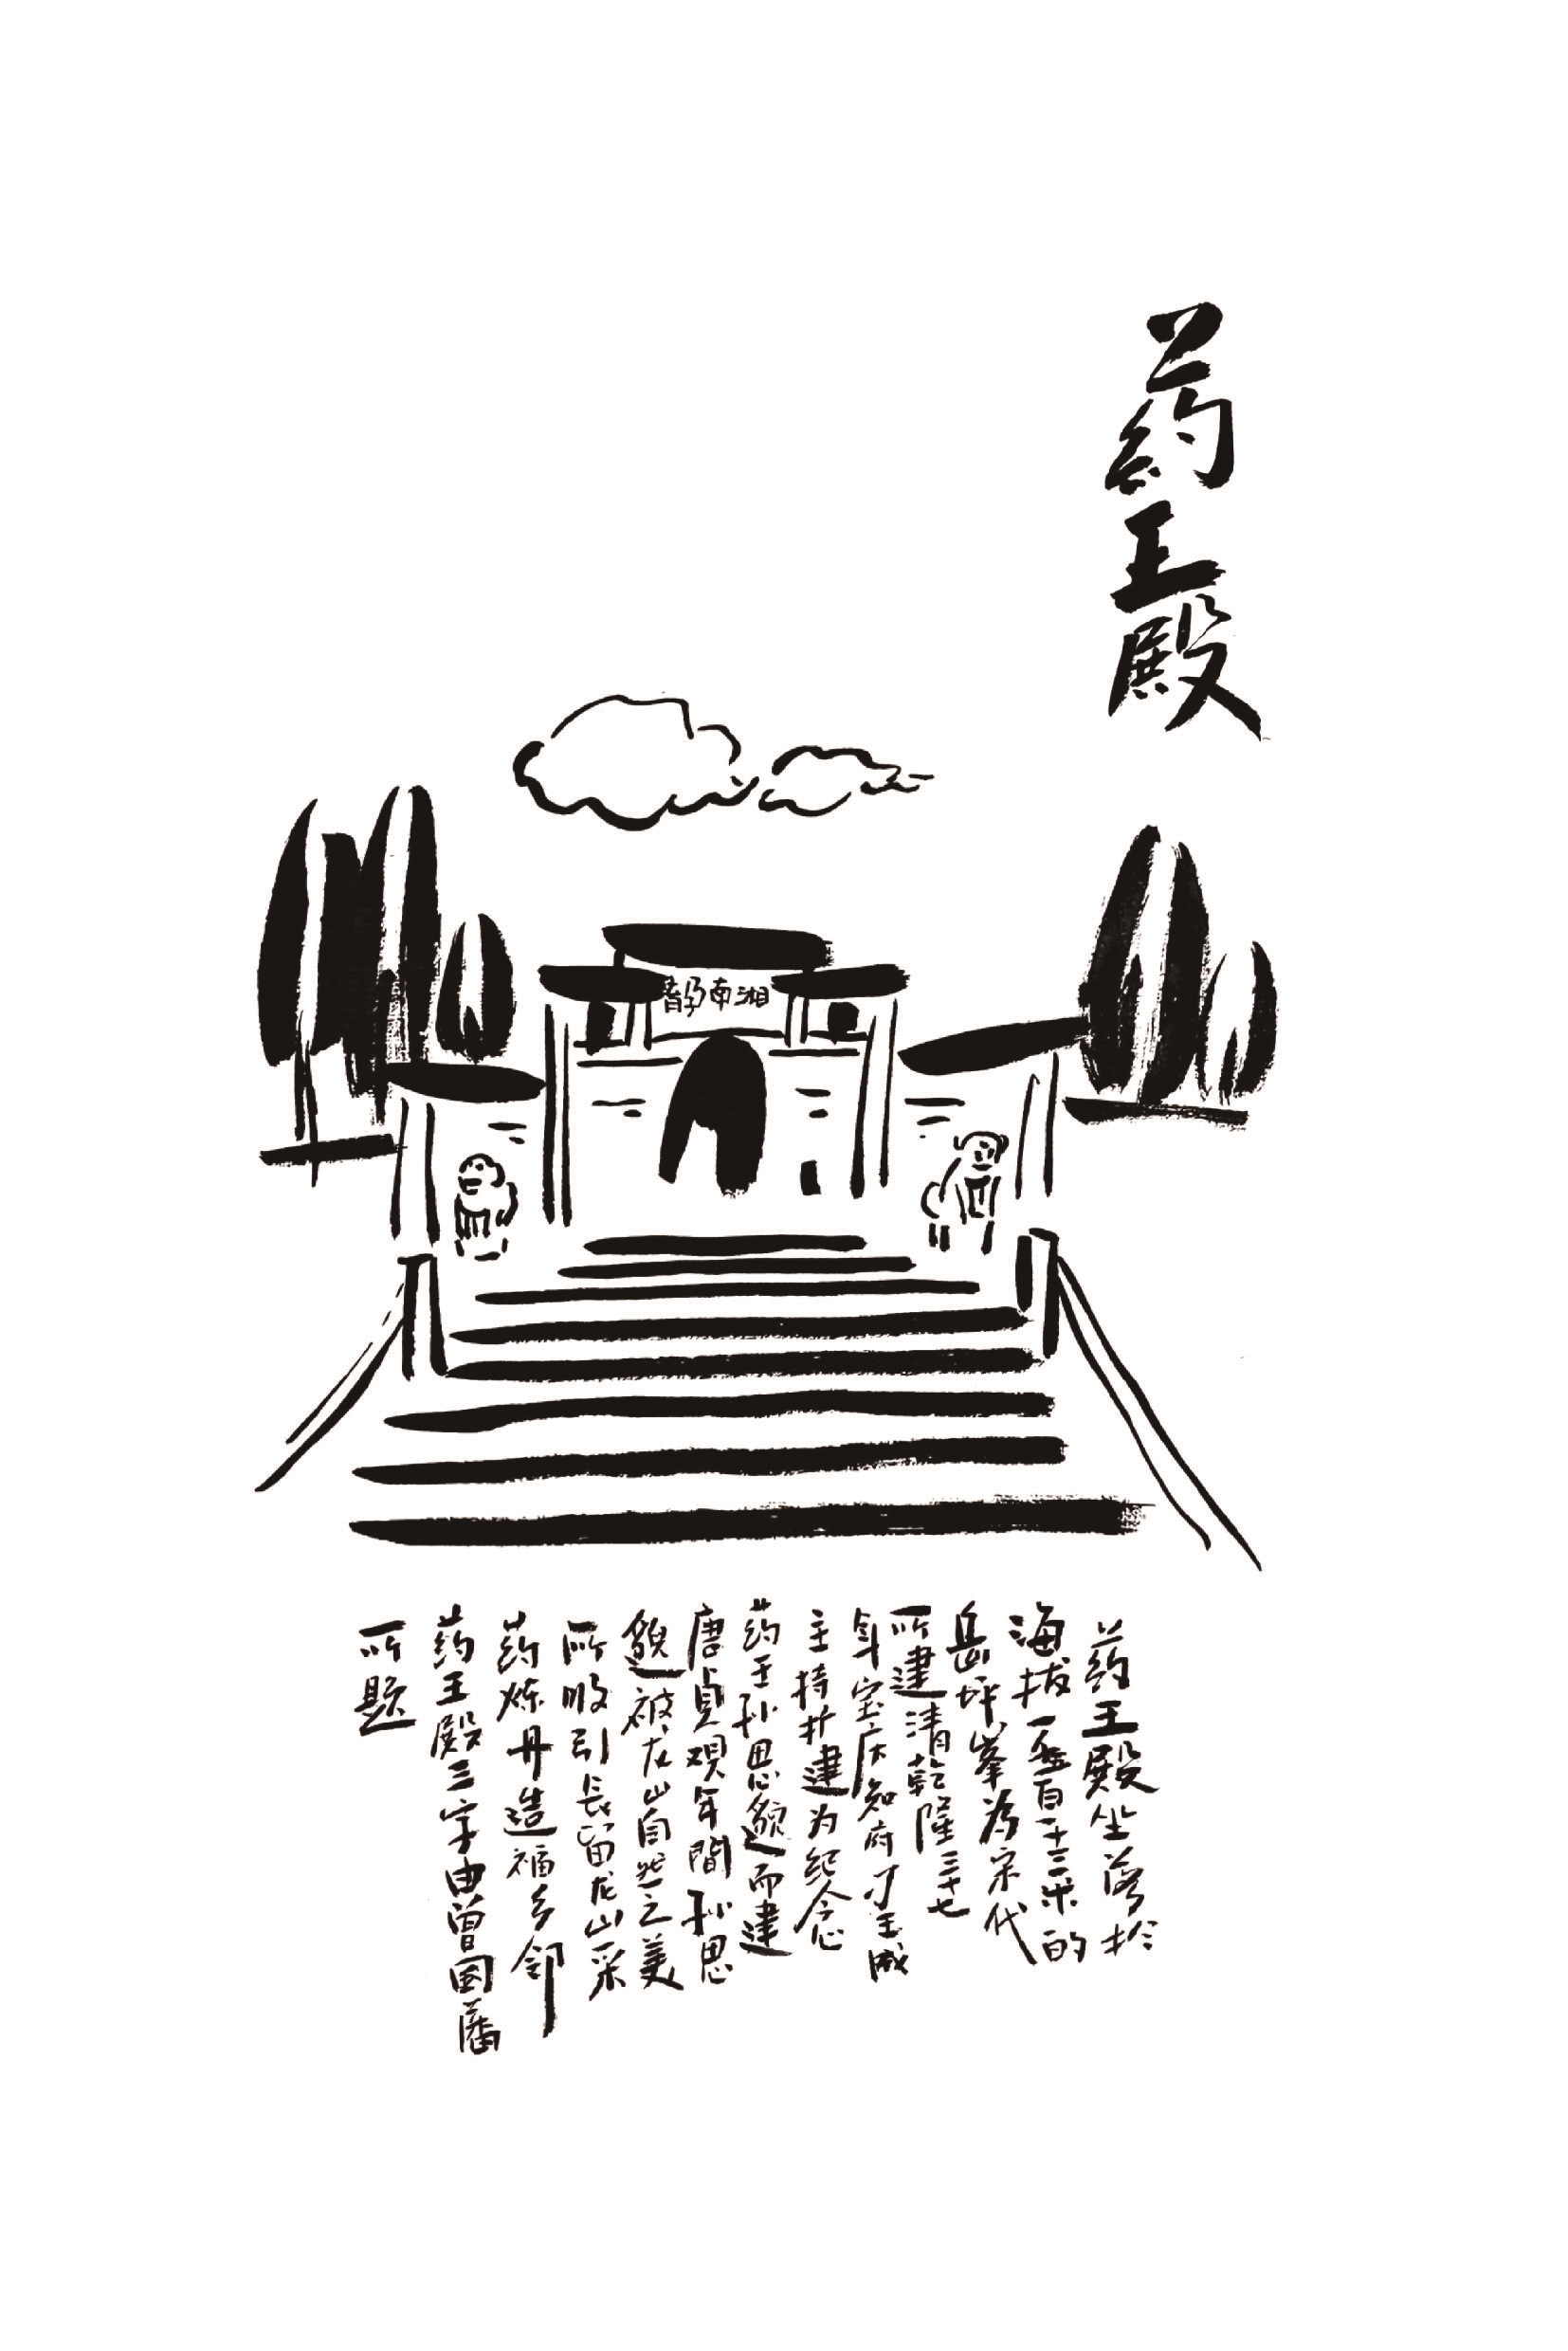 药王殿
湘南静
药王殿坐落於
海拔一千五百一十三米的
岳坪峯为宋代
所建清乾隆三十七
年宝庆知府才玉成
主持扩建为纪念
药王孙思邈而建
唐貞观年間孙思
邈被龙山自然之美
所吸引長留龙山采
药炼丹造福乡邻
药王殿三字由曾国藩
所题